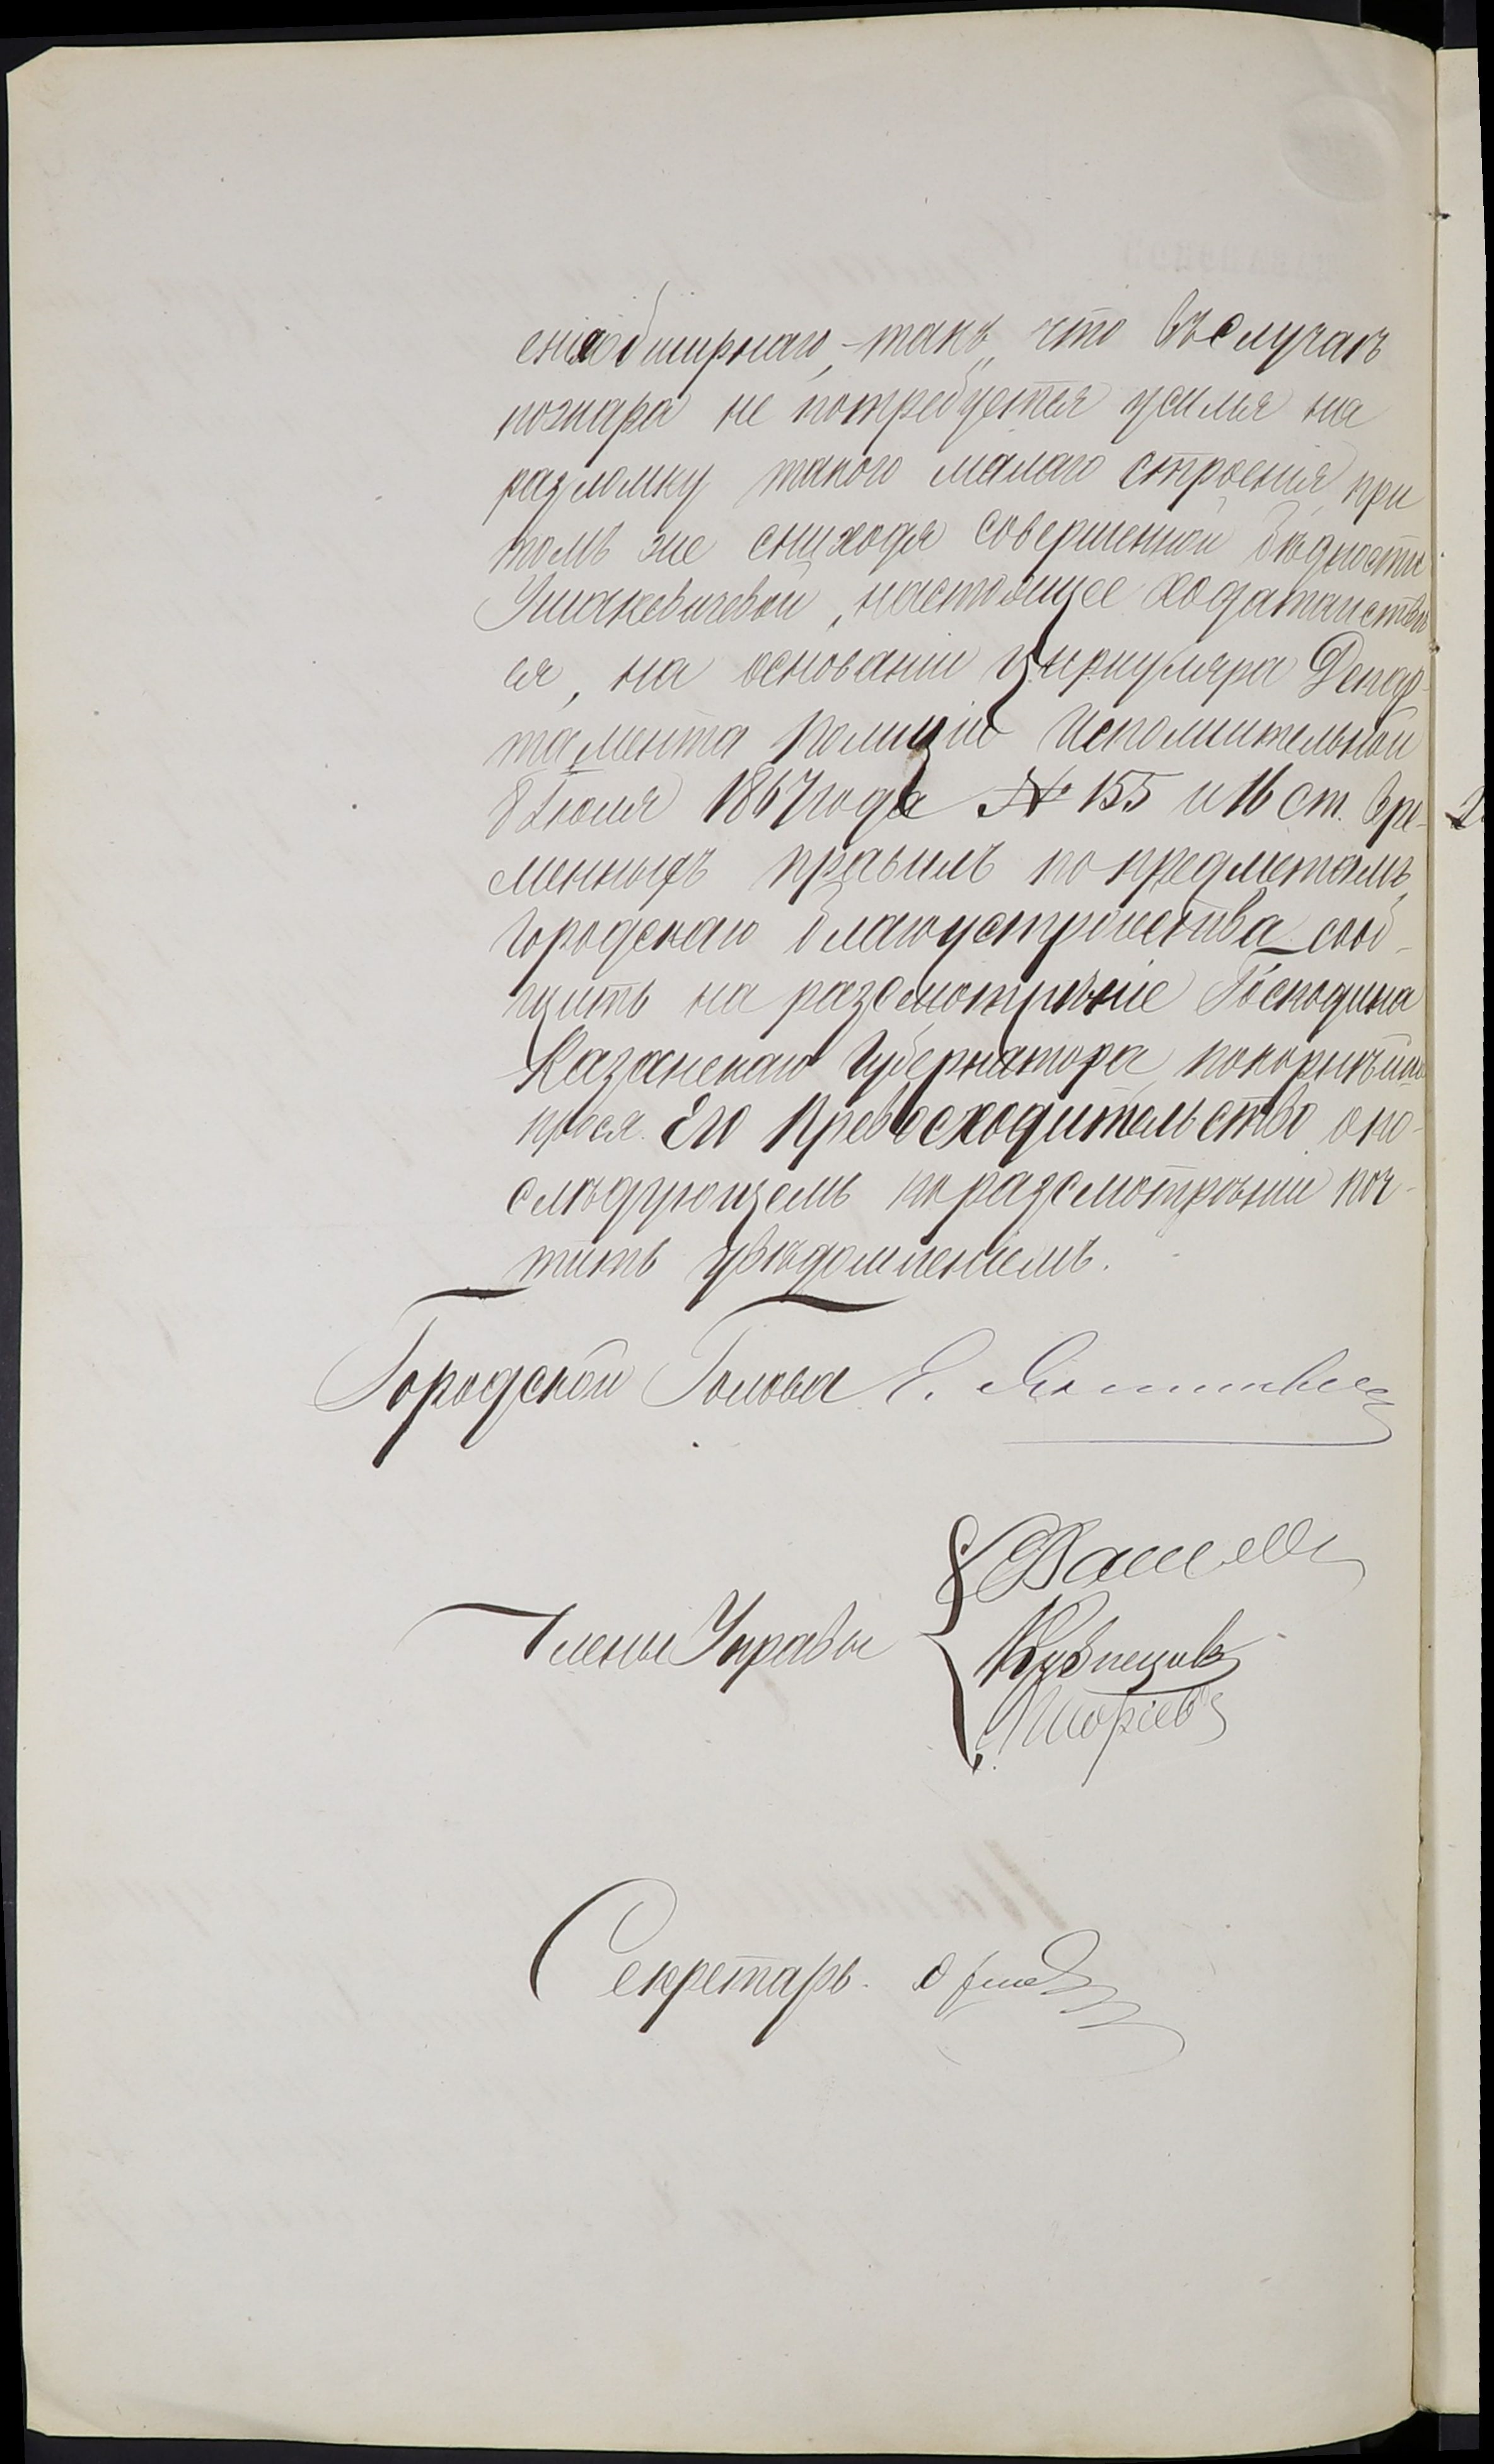 сна обширнаго, такъ что въ случаѣ
пожара не потребуется усилья на
разломку такого малаго строенія, при
томъ же снисходя совершенной бѣдности
Ушакевичевой, настоящее ходатайство
ея, на основаніи циркуляра Депар-
тамента полиціи Исполнительной
8 Іюля 1867 года № 155 и 16 ст. Вре-
менныхъ правилъ по предметамъ
городскаго благоустройства сооб-
щить на разсмотрѣніе Господина
Казанскаго Губернатора, покорнѣйше
прося Его Превосходительство о по-
слѣдующемъ по разсмотрѣніи поч-
тить увѣдомленіемъ.
Городской Голова Е.
Члены Управы
Кузнецовъ
Секретарь